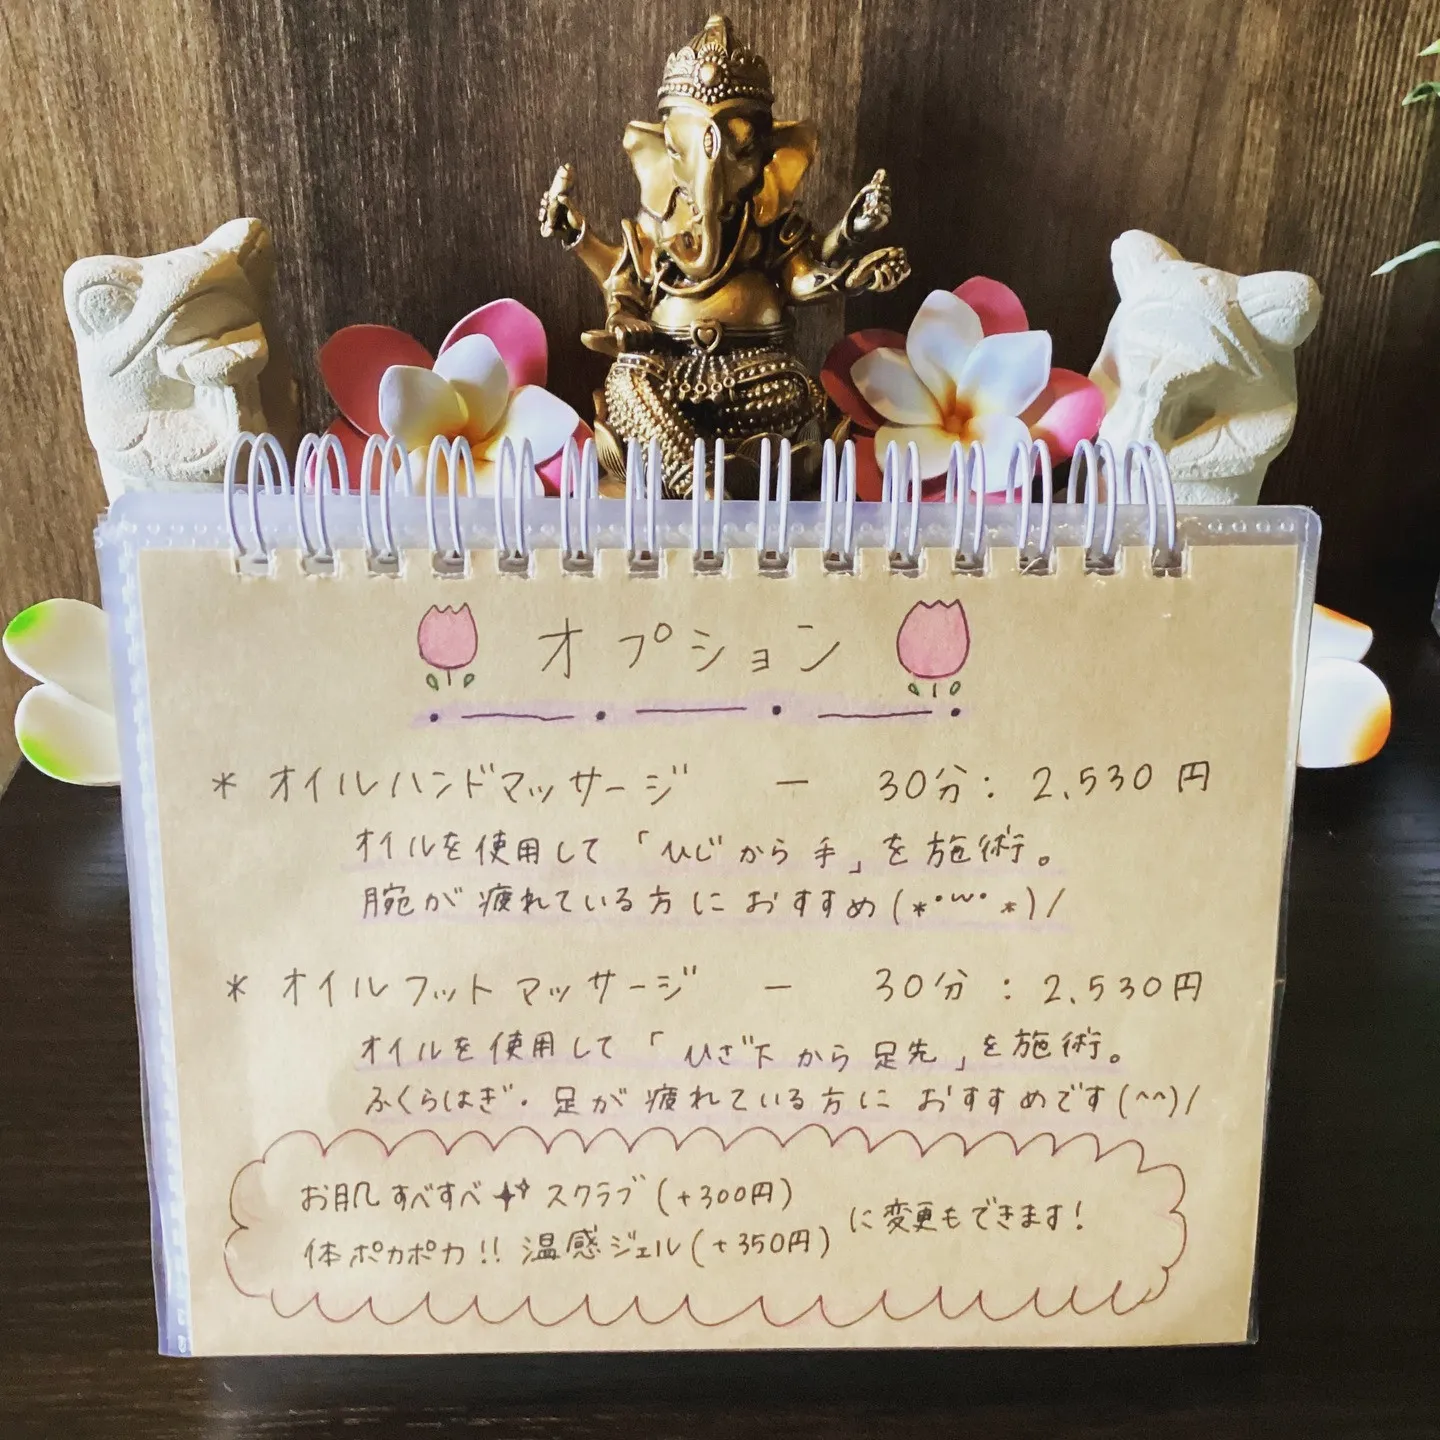 オプション
* オイルハンドマッサージ ー 30分: 2,530円
オイルを使用して「ひじから手」を施術。
腕が疲れている方におすすめ(*･ω･*)/
* オイルフットマッサージ ー 30分: 2,530円
オイルを使用して「ひざ下から足先」を施術。
ふくらはぎ・足が疲れている方におすすめです(^^)/
お肌すべすべ✨スクラブ(+300円)
体ポカポカ!!温感ジェル(+350円)
に変更もできます!